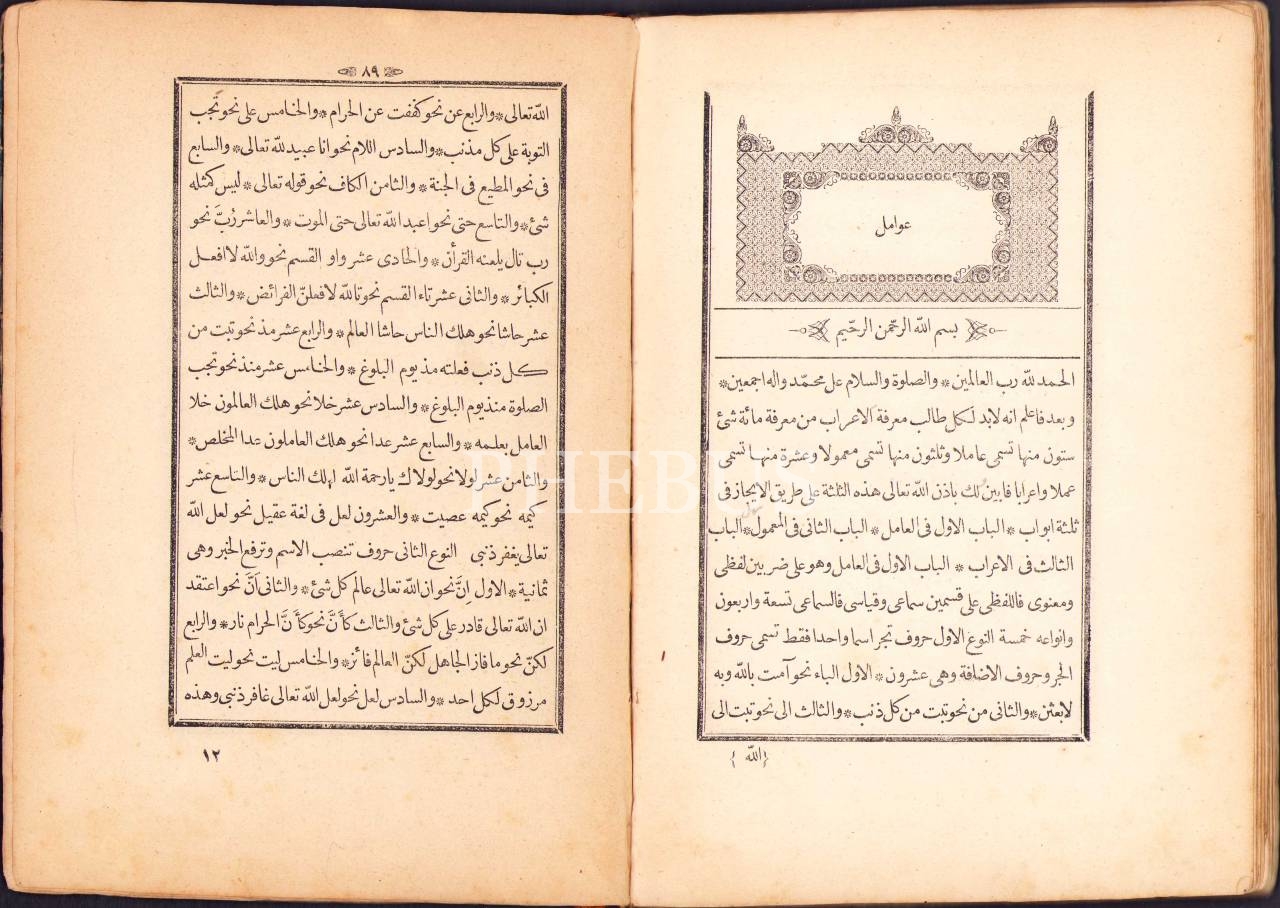 عوامل
بسم الله الرحمن الرحيم
الحمد لله رب العالمين * والصلوة والسلام على محمد واله اجمعين *
وبعد فاعلم انه لابد لكل طالب معرفة الاعراب من معرفة مائة شئ
ستون منها تسمى عاملا وثلثون منها تسمى معمولا وعشرة منها تسمى
عملا واعرابا فابين لك باذن الله تعالى هذه الثلثة على طريق الايجاز فى
ثلثة ابواب * الباب الاول فى العامل * الباب الثانى فى المعمول * الباب
الثالث فى الاعراب * الباب الاول فى العامل وهو على ضربين لفظى
ومعنوى فاللفظى على قسمين سماعى وقياسى فالسماعى تسعة واربعون
وانواعه خمسة النوع الاول حروف تجر اسما واحدا فقط تسمى حروف
الجر وحروف الاضافة وهى عشرون * الاول الباء نحو آمنت بالله وبه
لابعثن * والثانى من نحو تبت من كل ذنب * والثالث الى نحو تبت الى
{الله}
٨٩
الله تعالى * والرابع عن نحو كففت عن الحرام * والخامس على نحو تجب
التوبة على كل مذنب * والسادس اللام نحو انا عبيد لله تعالى * والسابع
فى نحو المطيع فى الجنة * والثامن الكاف نحو قوله تعالى * ليس كمثله
شئ * والتاسع حتى نحو اعبد الله تعالى حتى الموت * والعاشر رُبَّ نحو
رب تال يلعنه القرأن * والحادى عشر واو القسم نحو والله لا افعل
الكبائر * والثانى عشر تاء القسم نحو تالله لافعلنّ الفرائض * والثالث
عشر حاشا نحو هلك الناس حاشا العالم * والرابع عشر مذ نحو تبت من
كل ذنب فعلته مذ يوم البلوغ * والخامس عشر منذ نحو تجب
الصلوة منذ يوم البلوغ * والسادس عشر خلا نحو هلك العالمون خلا
العامل بعلمه * والسابع عشر عدا نحو هلك العاملون عدا المخلص *
والثامن عشر لولا نحو لولاك يا رحمة الله لهلك الناس * والتاسع عشر
كيمه نحو كيمه عصيت * والعشرون لعل فى لغة عقيل نحو لعل الله
تعالى يغفر ذنبى النوع الثانى حروف تنصب الاسم وترفع الخبر وهى
ثمانية * الاول اِنَّ نحو ان الله تعالى عالم كل شئ * والثانى اَنَّ نحو اعتقد
ان الله تعالى قادر على كل شئ والثالث كَأَنَّ نحو كَأَنَّ الحرام نار * والرابع
لكنّ نحو ما فاز الجاهل لكنّ العالم فائز * والخامس ليت نحو ليت العلم
مرزوق لكل احد * والسادس لعل نحو لعل الله تعالى غافر ذنبى وهذه
١٢